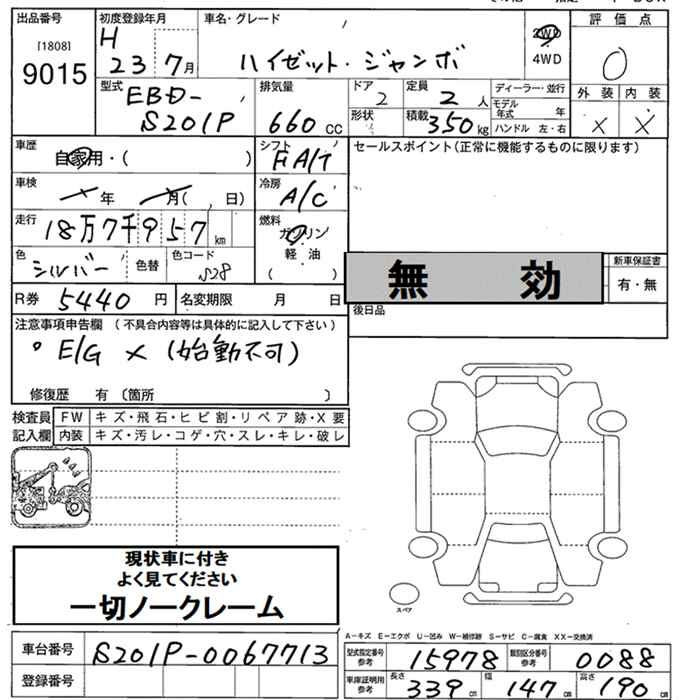 出品番号 初度登録年月 車名・グレード 2WD 評価点
[1808] H 4WD 0
9015 23 7月 ハイゼット・ジャンボ
型式 排気量 ドア 定員 ディーラー・並行 外装 内装
EBD- 2 2人 モデル年式 年
S201P 660CC 形状 積載 350kg ハンドル 左・右 X X
車歴 自家用・( ) シフト FA/T セールスポイント(正常に機能するものに限ります)
車検 年 月( 日) 冷房 A/C
走行 18万7千957km 燃料 ガソリン
軽油
色 シルバー 色替 色コード S28 ( )
無効 新車保証書
有・無
R券 5440円 名変期限 月 日
後日品
注意事項申告欄 (不具合内容等は具体的に記入して下さい)
。E/G × (始動不可)
修復歴 有 〔箇所 〕
検査員 FW キズ・飛石・ヒビ割・リペア跡・X要
記入欄 内装 キズ・汚レ・コゲ・穴・スレ・キレ・破レ
現状車に付き
よく見てください
一切ノークレーム
スペア
A-キズ E-エクボ U-凹み W-補修跡 S-サビ C-腐食 XX-交換済
車台番号 S201P-0067713 型式指定番号 参考 15978 類別区分番号 参考 0088
登録番号 車庫証明用 参考 長さ 339cm 幅 147cm 高さ 190cm